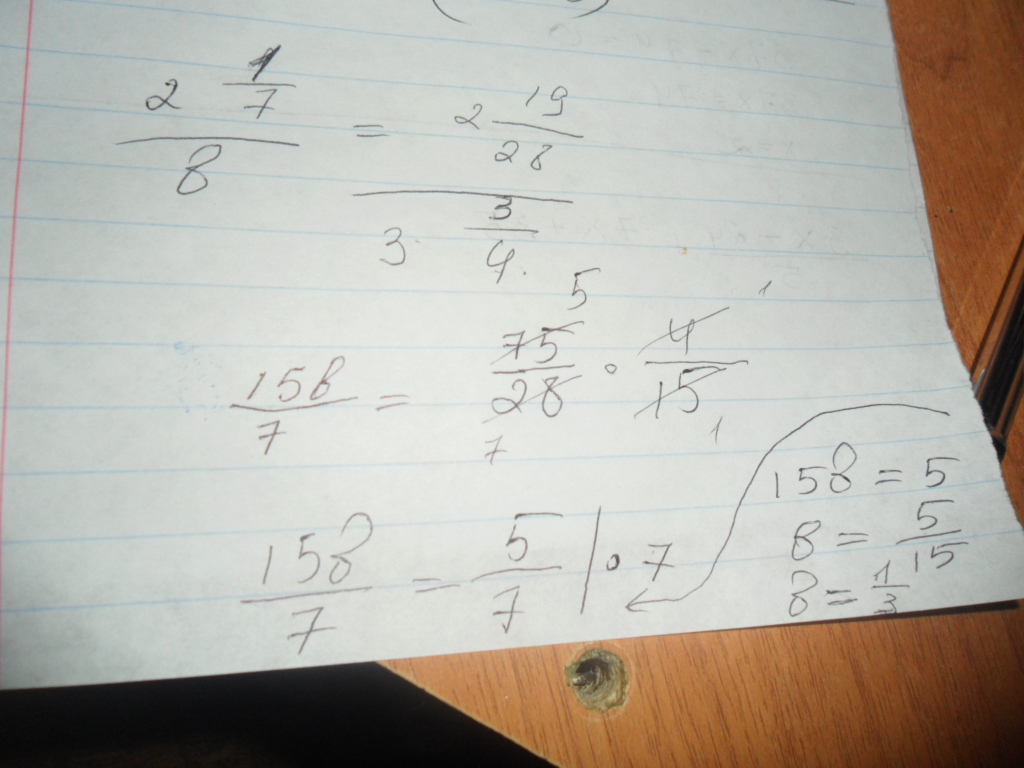 2 1/7 / 8 = 2 19/28 / 3 3/4
158/7 = 75/28 · 4/15
5 1
7 1
158/7 = 5/7 | · 7
158 = 5
8 = 5/15
8 = 1/3